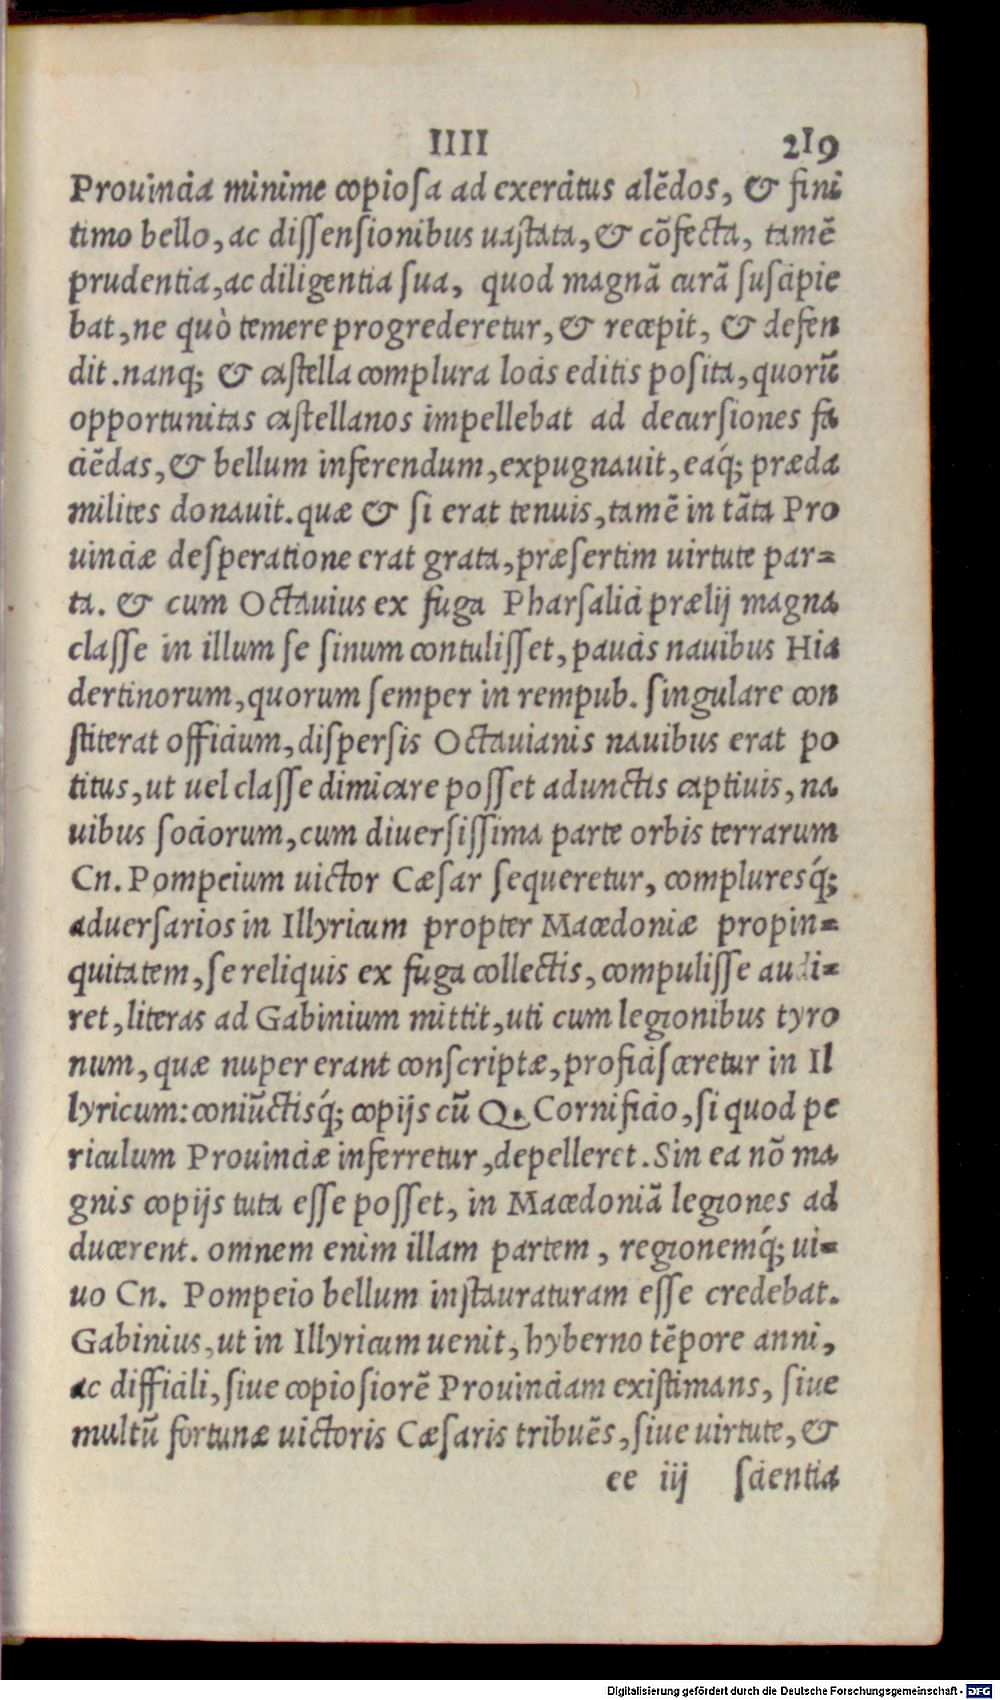 IIII 219
Prouincia minime copiosa ad exercitus alēdos, & fini
timo bello, ac dissensionibus uastata, & cōfecta, tamē
prudentia, ac diligentia sua, quod magnā curā suscipie
bat, ne quò temere progrederetur, & recepit, & defen
dit. nanq; & castella complura locis editis posita, quorū
opportunitas castellanos impellebat ad decursiones fa
ciēdas, & bellum inferendum, expugnauit, eaq́; præda
milites donauit. quæ & si erat tenuis, tamē in tāta Pro
uinciæ desperatione erat grata, præsertim uirtute par=
ta. & cum Octauius ex fuga Pharsalici prælij magna
classe in illum se sinum contulisset, paucis nauibus Hia
dertinorum, quorum semper in rempub. singulare con
stiterat officium, dispersis Octauianis nauibus erat po
titus, ut uel classe dimicare posset adunctis captiuis, na
uibus sociorum, cum diuersissima parte orbis terrarum
Cn. Pompeium uictor Cæsar sequeretur, compluresq́;
aduersarios in Illyricum propter Macedoniæ propin=
quitatem, se reliquis ex fuga collectis, compulisse audi=
ret, literas ad Gabinium mittit, uti cum legionibus tyro
num, quæ nuper erant conscriptæ, proficisceretur in Il
lyricum: coniūctisq́; copijs cū Q. Cornificio, si quod pe
riculum Prouinciæ inferretur, depelleret. Sin ea nō ma
gnis copijs tuta esse posset, in Macedoniā legiones ad
ducerent. omnem enim illam partem, regionemq́; ui=
uo Cn. Pompeio bellum instauraturam esse credebat.
Gabinius, ut in Illyricum uenit, hyberno tēpore anni,
ac difficili, siue copiosiorē Prouinciam existimans, siue
multū fortunæ uictoris Cæsaris tribuēs, siue uirtute, &
ee iij scientia
Digitalisierung gefördert durch die Deutsche Forschungsgemeinschaft - DFG